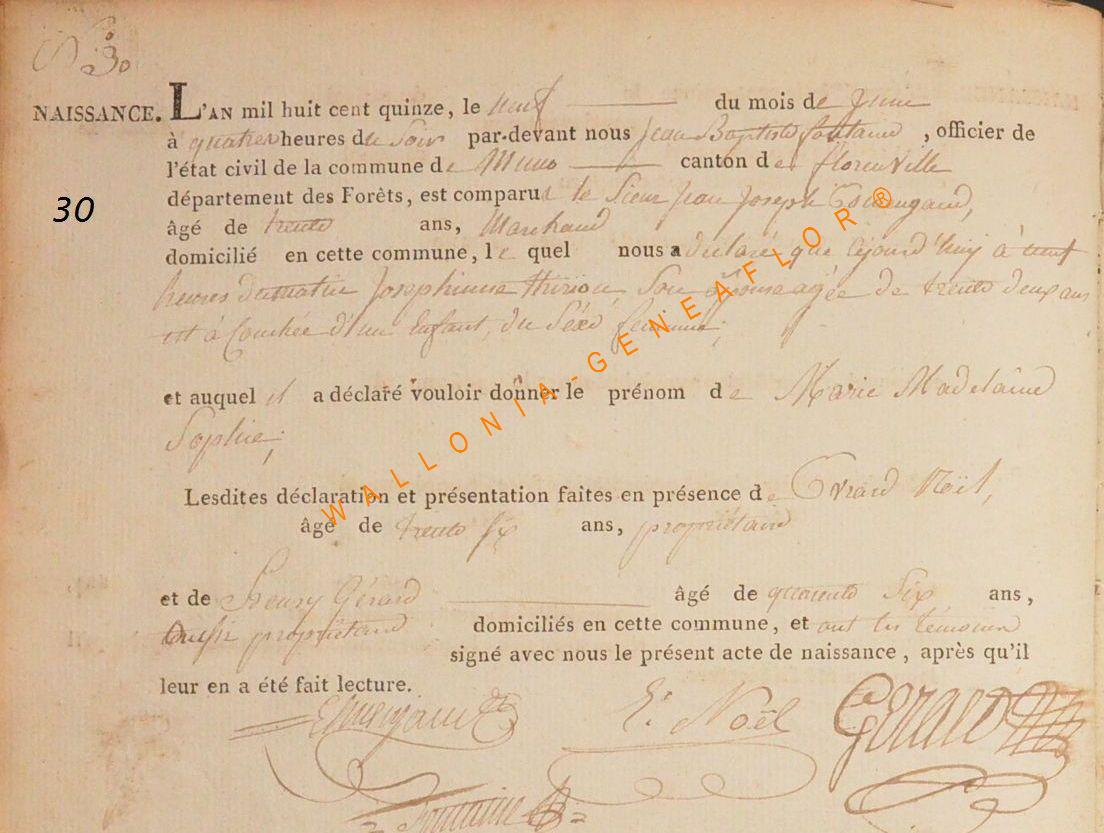 N° 30
NAISSANCE. L'AN mil huit cent quinze, le neuf du mois de Juin
à quatre heures du Soir par-devant nous Jean Baptiste fontaine, officier de
l'état civil de la commune de Muno canton de florenville
département des Forêts, est comparu le Sieur Jean Joseph
30
âgé de trente ans, Marchand
domicilié en cette commune, le quel nous a déclaré que cejourd'huy à
heures du matin Josephinne thiriou Son Epouse agée de trente deux ans
est àcouchée d'un Enfant, du Séxe feminin;
et auquel il a déclaré vouloir donner le prénom de Marie Madelaine
Sophie;
Lesdites déclaration et présentation faites en présence de Evrard Noël,
âgé de trente six ans, propriétaire
et de henry Gérard âgé de quarente Six ans,
aussi propriétaire domiciliés en cette commune, et ont les témoins
signé avec nous le présent acte de naissance, après qu'il
leur en a été fait lecture.
E: Noël
Gerard
fontaine
WALLONIA-GENEAFLOR®